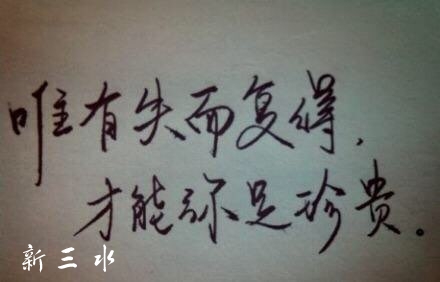 唯有失而复得，
才能弥足珍贵。
新三水